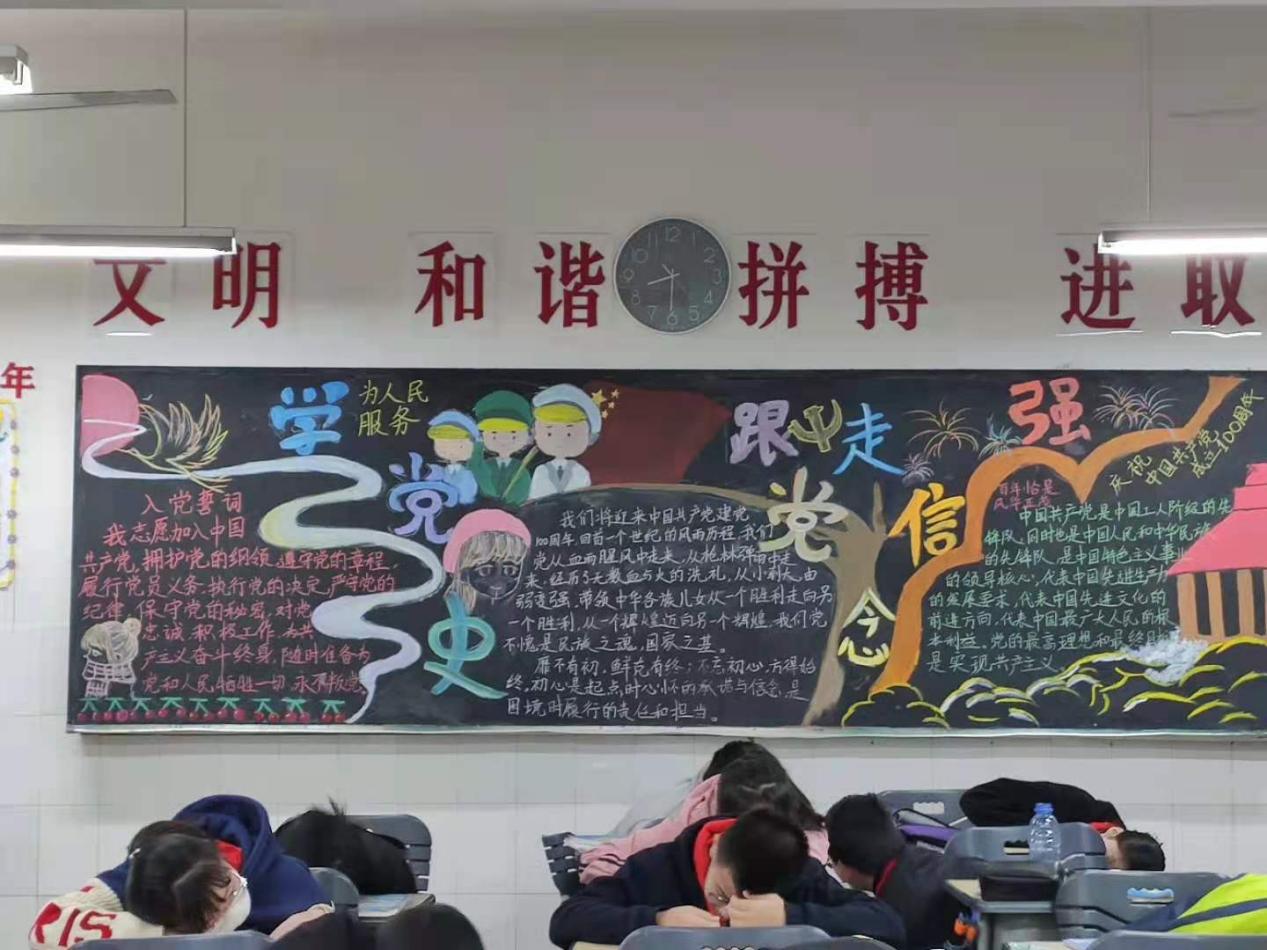 文明 和谐 拼搏 进取
12
1
2
3
4
5
6
7
8
9
10
11
年
学党史
为人民
服务
跟走
党
强
信念
庆祝
中国共产党
成立100周年
百年恰是
风华正茂
入党誓词
我志愿加入中国
共产党,拥护党的纲领,遵守党的章程,
履行党员义务,执行党的决定,严守党的
纪律,保守党的秘密,对党
忠诚,积极工作,为共
产主义奋斗终身,随时准备为
党和人民牺牲一切,永不叛党。
我们将迎来中国共产党建党
100周年,回首一个世纪的风雨历程,我们
党从血雨腥风中走来,从枪林弹雨中走
来,经历了无数血与火的洗礼,从小到大,由
弱变强,带领中华各族儿女从一个胜利走向另
一个胜利,从一个辉煌迈向另一个辉煌,我们党
不愧是民族之魂,国家之基。
靡不有初,鲜克有终;不忘初心,方得始
终。初心是起点时心怀的承诺与信念,是
困境时履行的责任和担当。
中国共产党是中国工人阶级的先
锋队,同时也是中国人民和中华民族
的先锋队,是中国特色主义事业
的领导核心,代表中国先进生产力
的发展要求,代表中国先进文化的
前进方向,代表中国最广大人民的根
本利益。党的最高理想和最终目
是实现共产主义